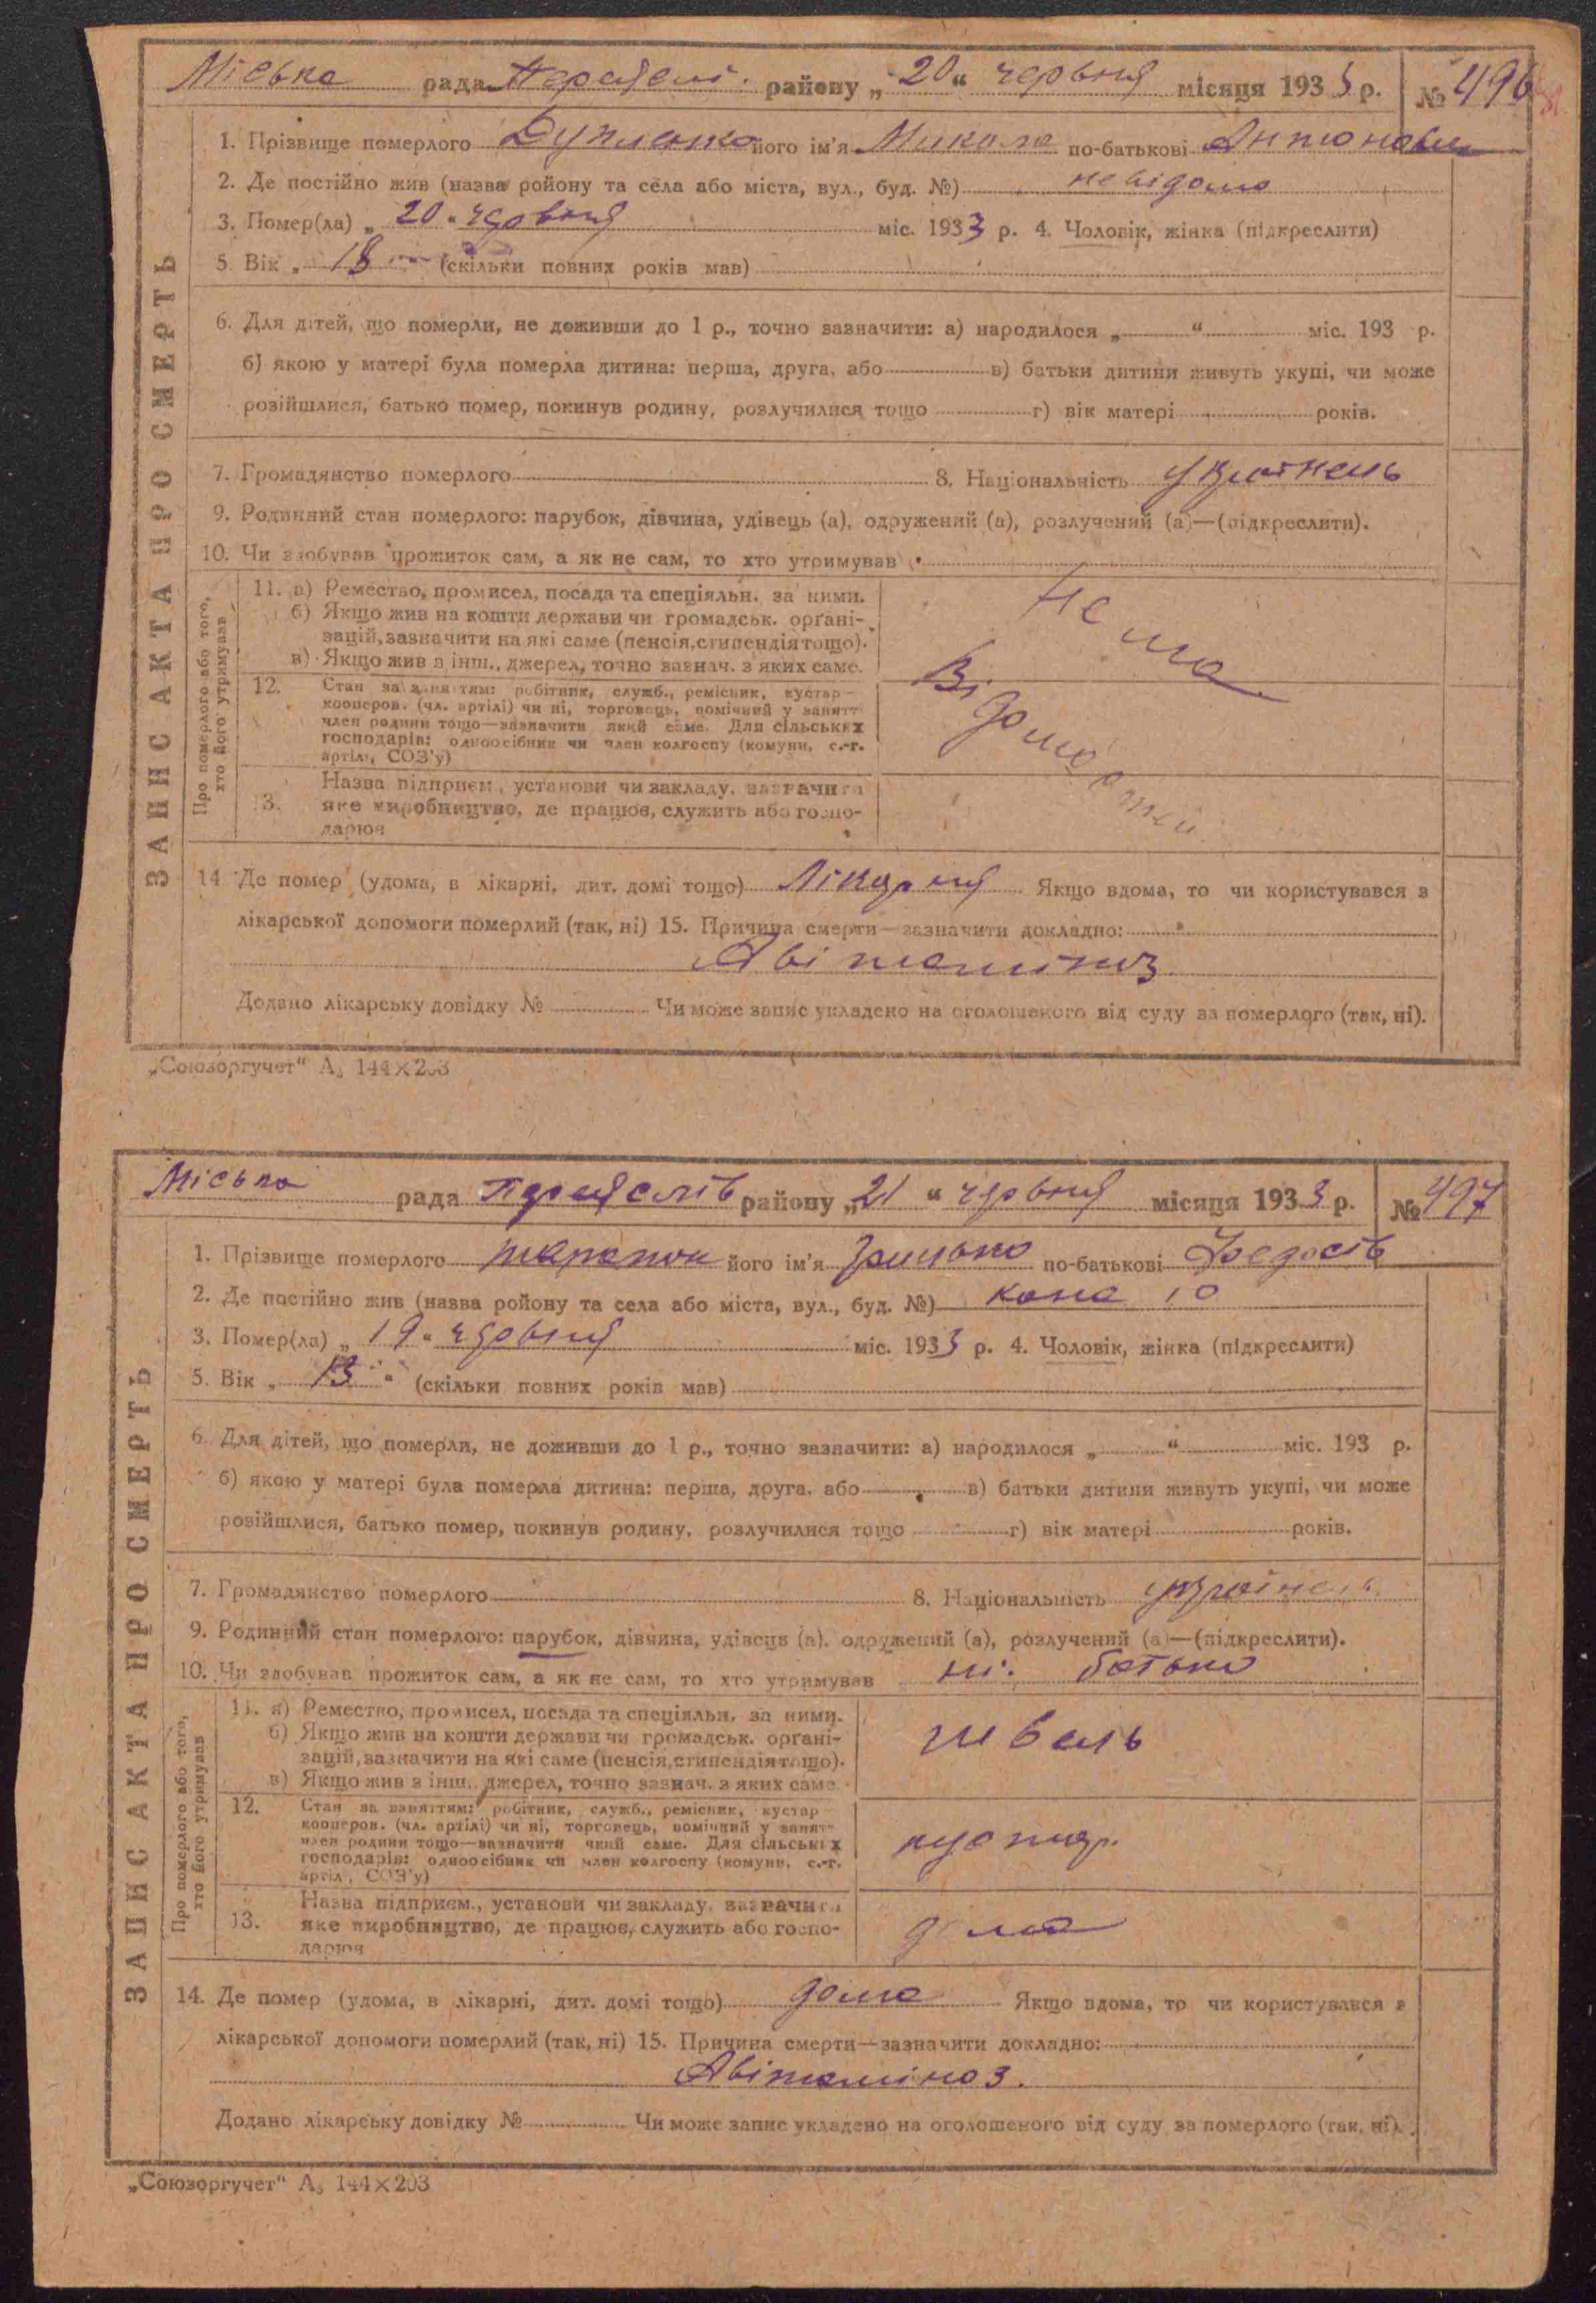 Міська рада Переясл. району „20“ червня місяця 1933 р. № 496
ЗАПИС АКТА ПРО СМЕРТЬ
1. Прізвище померлого його ім'я Микола по-батькові Антонович
2. Де постійно жив (назва ройону та села або міста, вул., буд. №) невідомо
3. Помер(ла) „20“ червня міс. 1933 р. 4. Чоловік, жінка (підкреслити)
5. Вік „18“ (скільки повних років мав)
6. Для дітей, що померли, не доживши до 1 р., точно зазначити: а) народилося „ “ міс. 193 р.
б) якою у матері була померла дитина: перша, друга, або в) батьки дитини живуть укупі, чи може
розійшлися, батько помер, покинув родину, розлучилися тощо г) вік матері років.
7. Громадянство померлого 8. Національність українець
9. Родинний стан померлого: парубок, дівчина, удівець (а), одружений (а), розлучений (а)—(підкреслити).
10. Чи здобував прожиток сам, а як не сам, то хто утримував
Про померлого або того, хто його утримував
11. а) Ремество, промисел, посада та спеціяльн. за ними.
б) Якщо жив на кошти держави чи громадськ. орґані-
зацій, зазначити на які саме (пенсія, стипендія тощо).
в) Якщо жив з інш., джерел, точно зазнач. з яких саме.
12. Стан за заняттям: робітник, служб., ремісник, кустар—
кооперов. (чл. артілі) чи ні, торговець, помічний у занятт
член родини тощо—зазначити який саме. Для сільських
господарів: одноосібник чи член колгоспу (комуни, с.-г.
артілі, СОЗ'у)
13. Назва підприєм., установи чи закладу, зазначити
яке виробництво, де працює, служить або госпо-
дарює
Нема
Відомостей
14. Де помер (удома, в лікарні, дит. домі тощо) Лікарня Якщо вдома, то чи користувався з
лікарської допомоги померлий (так, ні) 15. Причина смерти—зазначити докладно:
Авітаміноз
Додано лікарську довідку № Чи може запис укладено на оголошеного від суду за померлого (так, ні).
„Союзоргучет“ А₅ 144×203
Міська рада Переяслів району „21“ червня місяця 1933 р. № 497
ЗАПИС АКТА ПРО СМЕРТЬ
1. Прізвище померлого його ім'я Грицько по-батькові Федосів
2. Де постійно жив (назва ройону та села або міста, вул., буд. №) 10
3. Помер(ла) „19“ червня міс. 1933 р. 4. Чоловік, жінка (підкреслити)
5. Вік „13“ (скільки повних років мав)
6. Для дітей, що померли, не доживши до 1 р., точно зазначити: а) народилося „ “ міс. 193 р.
б) якою у матері була померла дитина: перша, друга, або в) батьки дитини живуть укупі, чи може
розійшлися, батько помер, покинув родину, розлучилися тощо г) вік матері років.
7. Громадянство померлого 8. Національність українець
9. Родинний стан померлого: парубок, дівчина, удівець (а), одружений (а), розлучений (а)—(підкреслити).
10. Чи здобував прожиток сам, а як не сам, то хто утримував ні. батько
Про померлого або того, хто його утримував
11. а) Ремество, промисел, посада та спеціяльн. за ними.
б) Якщо жив на кошти держави чи громадськ. орґані-
зацій, зазначити на які саме (пенсія, стипендія тощо).
в) Якщо жив з інш., джерел, точно зазнач. з яких саме.
швець
12. Стан за заняттям: робітник, служб., ремісник, кустар—
кооперов. (чл. артілі) чи ні, торговець, помічний у занятт
член родини тощо—зазначити який саме. Для сільських
господарів: одноосібник чи член колгоспу (комуни, с.-г.
артілі, СОЗ'у)
кустар.
13. Назва підприєм., установи чи закладу, зазначити
яке виробництво, де працює, служить або госпо-
дарює
дома
14. Де помер (удома, в лікарні, дит. домі тощо) дома Якщо вдома, то чи користувався з
лікарської допомоги померлий (так, ні) 15. Причина смерти—зазначити докладно:
Авітаміноз.
Додано лікарську довідку № Чи може запис укладено на оголошеного від суду за померлого (так, ні).
„Союзоргучет“ А₅ 144×203